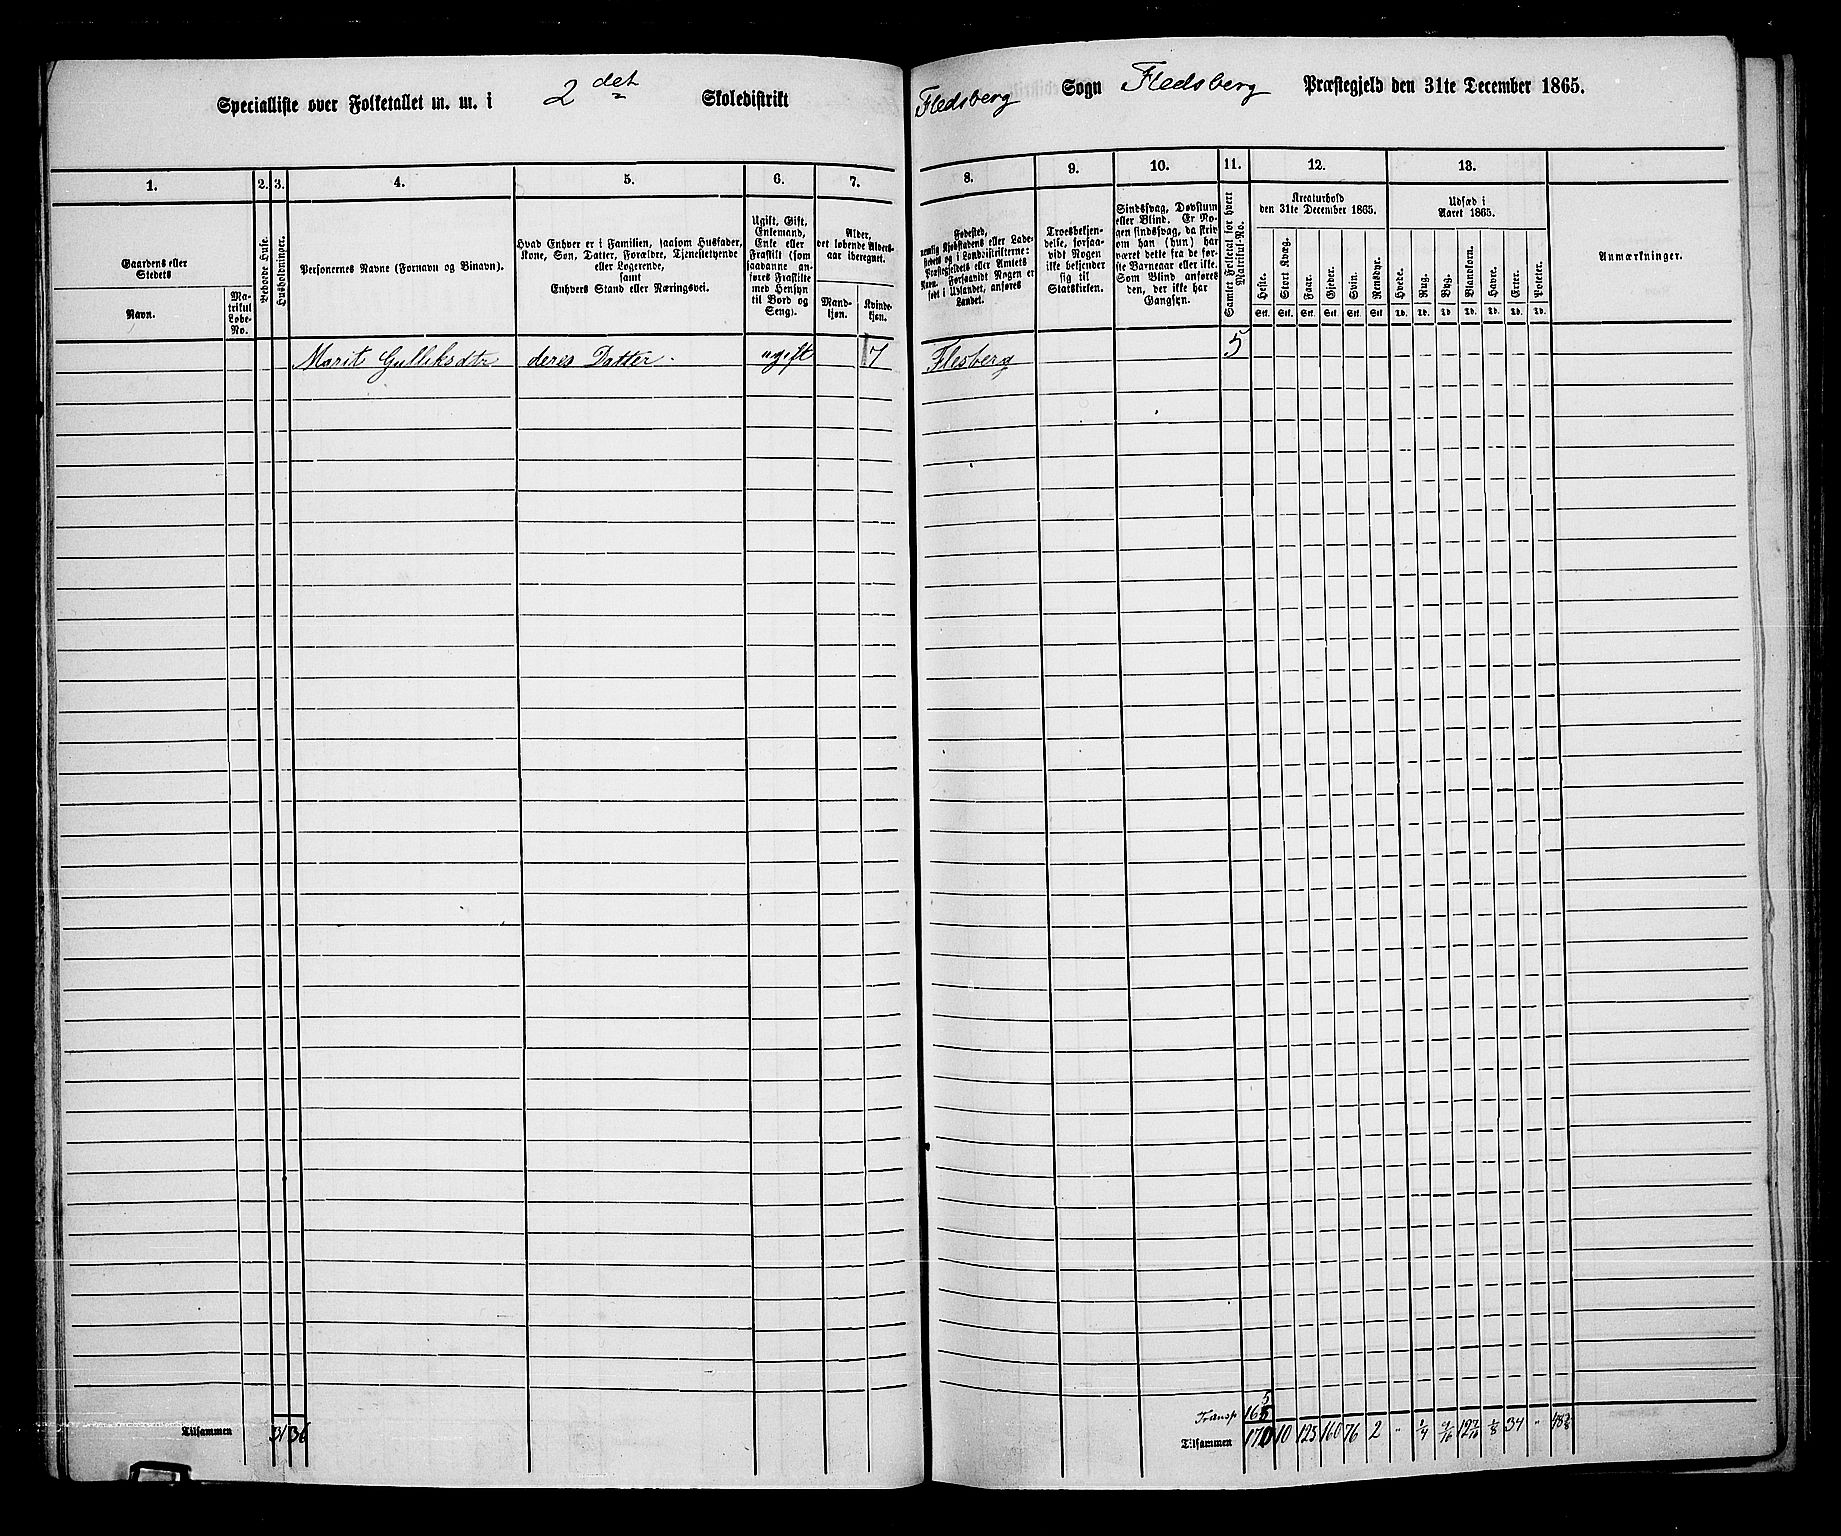 Specialliste over Folketallet m. m. i 2det Skoledistrikt Fledsberg Sogn Fledsberg Præstegjeld den 31te December 1865.
1. 2. 3. 4. 5. 6. 7. 8. 9. 10. 11. 12. 13.
Gaardens eller
Stedets
Navn.
Ma-
trikul
Løbe-
No.
Beboede Huse.
Husholdninger.
Personernes Navne (Fornavn og Binavn).
Hvad Enhver er i Familien, saasom Husfader,
Kone, Søn, Datter, Forældre, Tjenestetyende
eller Logerende,
samt
Enhvers Stand eller Næringsvei.
Ugift, Gift,
Enkemand,
Enke eller
Fraskilt (som
saadanne an-
føres Fraskilte
med Hensyn
til Bord og
Seng).
Alder,
det løbende Alders-
aar iberegnet.
Mand-
kjøn.
Kvinde-
kjøn.
Fødested,
nemlig Kjøbstadens eller Lade-
stedets og i Landdistrikterne:
Præstegjeldets eller Amtets
Navn. Forsaavidt Nogen er
født i Udlandet, anføres
Landet.
Troesbekjen-
delse, forsaa-
vidt Nogen
ikke bekjender
sig til
Statskirken.
Sindssvag, Døvstum
eller Blind. Er No-
gen sindssvag, da skriv
om han (hun) har
været dette fra de før-
ste Barneaar eller ikke.
Som Blind anføres
den, der ikke har
Gangsyn.
Samlet Folketal for hvert
Matrikul-No.
Kreaturhold
den 31te December 1865.
Heste.
Stort Kvæg.
Faar.
Gjeder.
Svin.
Rensdyr.
Stk. Stk. Stk. Stk. Stk. Stk
Udsæd i
Aaret 1865.
Hvede.
Rug.
Byg.
Blandkorn.
Havre.
Erter.
Poteter.
Td. Td. Td Td. Td. Td. Td.
Anmærkninger.
Marit Gulliksdtr deres Datter. ugift 7 Flesberg 5
5
Transp 165
Tilsammen 31 36
Tilsammen 170 10 123 160 76 2 " 1/4 1/8 34 "